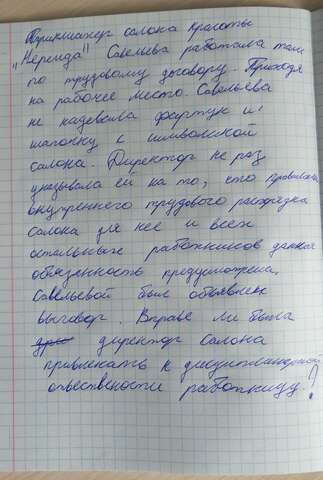 Парикмахер салона красоты
„Нереида" Савельева работала там
по трудовому договору. Приходя
на рабочее место. Савельева
не надевала фартук и
шапочку с символикой
салона. Директор не раз
указывала ей на то, что правилами
внутреннего трудового распорядка
салона для нее и всех
остальных работников данная
обязенность предусмотрена.
Савельевой был объявлен
выговор. Вправе ли была
директор салона
привлекать к дисциплинарной
ответствености работницу?